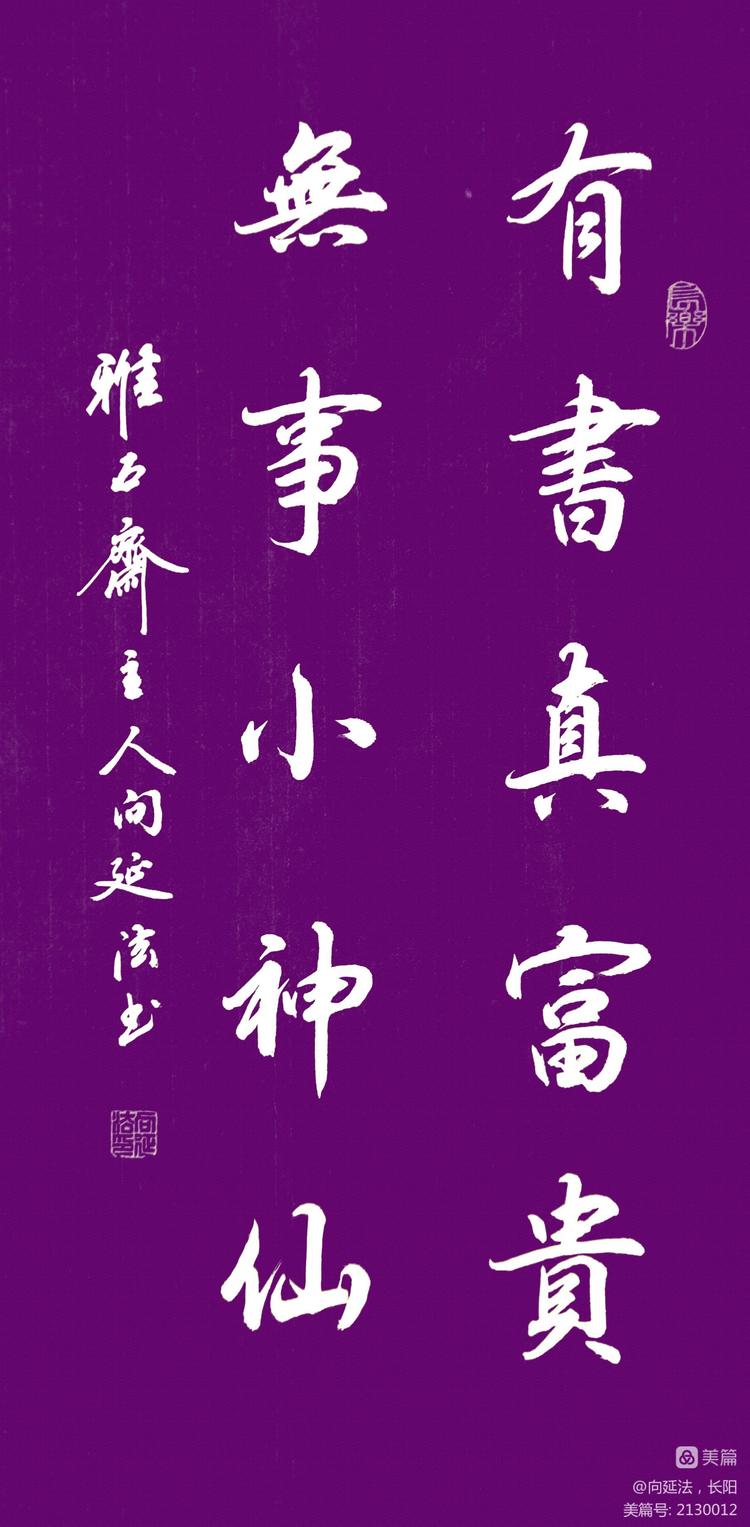 有書真富貴
無事小神仙
雅石齋主人向延法书
長樂
向延法印
美篇
@向延法，长阳
美篇号: 2130012